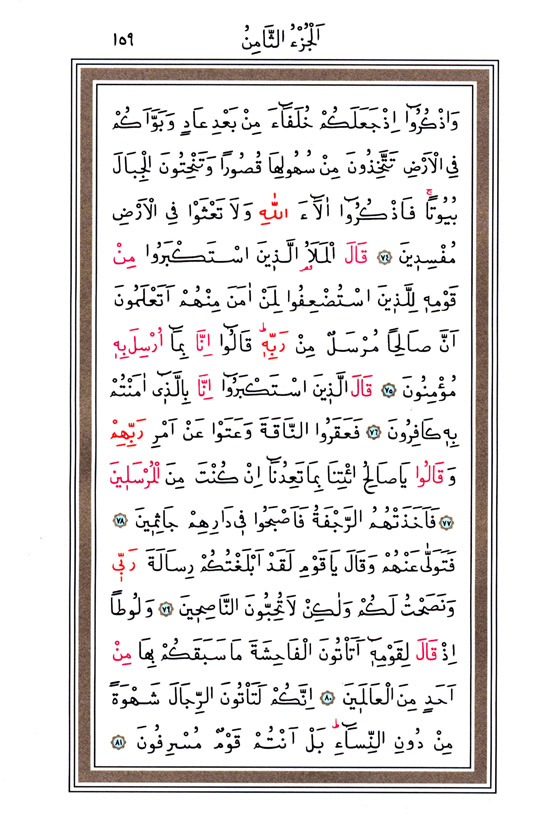 اَلْجُزْءُ الثَّامِنُ ١٥٩
وَاذْكُرُٓوا اِذْ جَعَلَكُمْ خُلَفَٓاءَ مِنْ بَعْدِ عَادٍ وَبَوَّاَكُمْ
فِي الْاَرْضِ تَتَّخِذُونَ مِنْ سُهُولِهَا قُصُورًا وَتَنْحِتُونَ الْجِبَالَ
بُيُوتًاۚ فَاذْكُرُٓوا اٰلَٓاءَ اللّٰهِ وَلَا تَعْثَوْا فِي الْاَرْضِ
مُفْسِدٖينَ ﴿٧٤﴾ قَالَ الْمَلَاُ الَّذٖينَ اسْتَكْبَرُوا مِنْ
قَوْمِهٖ لِلَّذٖينَ اسْتُضْعِفُوا لِمَنْ اٰمَنَ مِنْهُمْ اَتَعْلَمُونَ
اَنَّ صَالِحًا مُرْسَلٌ مِنْ رَبِّهٖؕ قَالُٓوا اِنَّا بِمَٓا اُرْسِلَ بِهٖ
مُؤْمِنُونَ ﴿٧٥﴾ قَالَ الَّذٖينَ اسْتَكْبَرُٓوا اِنَّا بِالَّذٖٓي اٰمَنْتُمْ
بِهٖ كَافِرُونَ ﴿٧٦﴾ فَعَقَرُوا النَّاقَةَ وَعَتَوْا عَنْ اَمْرِ رَبِّهِمْ
وَقَالُوا يَاصَالِحُ ائْتِنَا بِمَا تَعِدُنَٓا اِنْ كُنْتَ مِنَ الْمُرْسَلٖينَ
﴿٧٧﴾ فَاَخَذَتْهُمُ الرَّجْفَةُ فَاَصْبَحُوا فٖي دَارِهِمْ جَاثِمٖينَ ﴿٧٨﴾
فَتَوَلّٰى عَنْهُمْ وَقَالَ يَاقَوْمِ لَقَدْ اَبْلَغْتُكُمْ رِسَالَةَ رَبّٖي
وَنَصَحْتُ لَكُمْ وَلٰكِنْ لَا تُحِبُّونَ النَّاصِحٖينَ ﴿٧٩﴾ وَلُوطًا
اِذْ قَالَ لِقَوْمِهٖٓ اَتَأْتُونَ الْفَاحِشَةَ مَا سَبَقَكُمْ بِهَا مِنْ
اَحَدٍ مِنَ الْعَالَمٖينَ ﴿٨٠﴾ اِنَّكُمْ لَتَأْتُونَ الرِّجَالَ شَهْوَةً
مِنْ دُونِ النِّسَٓاءِؕ بَلْ اَنْتُمْ قَوْمٌ مُسْرِفُونَ ﴿٨١﴾